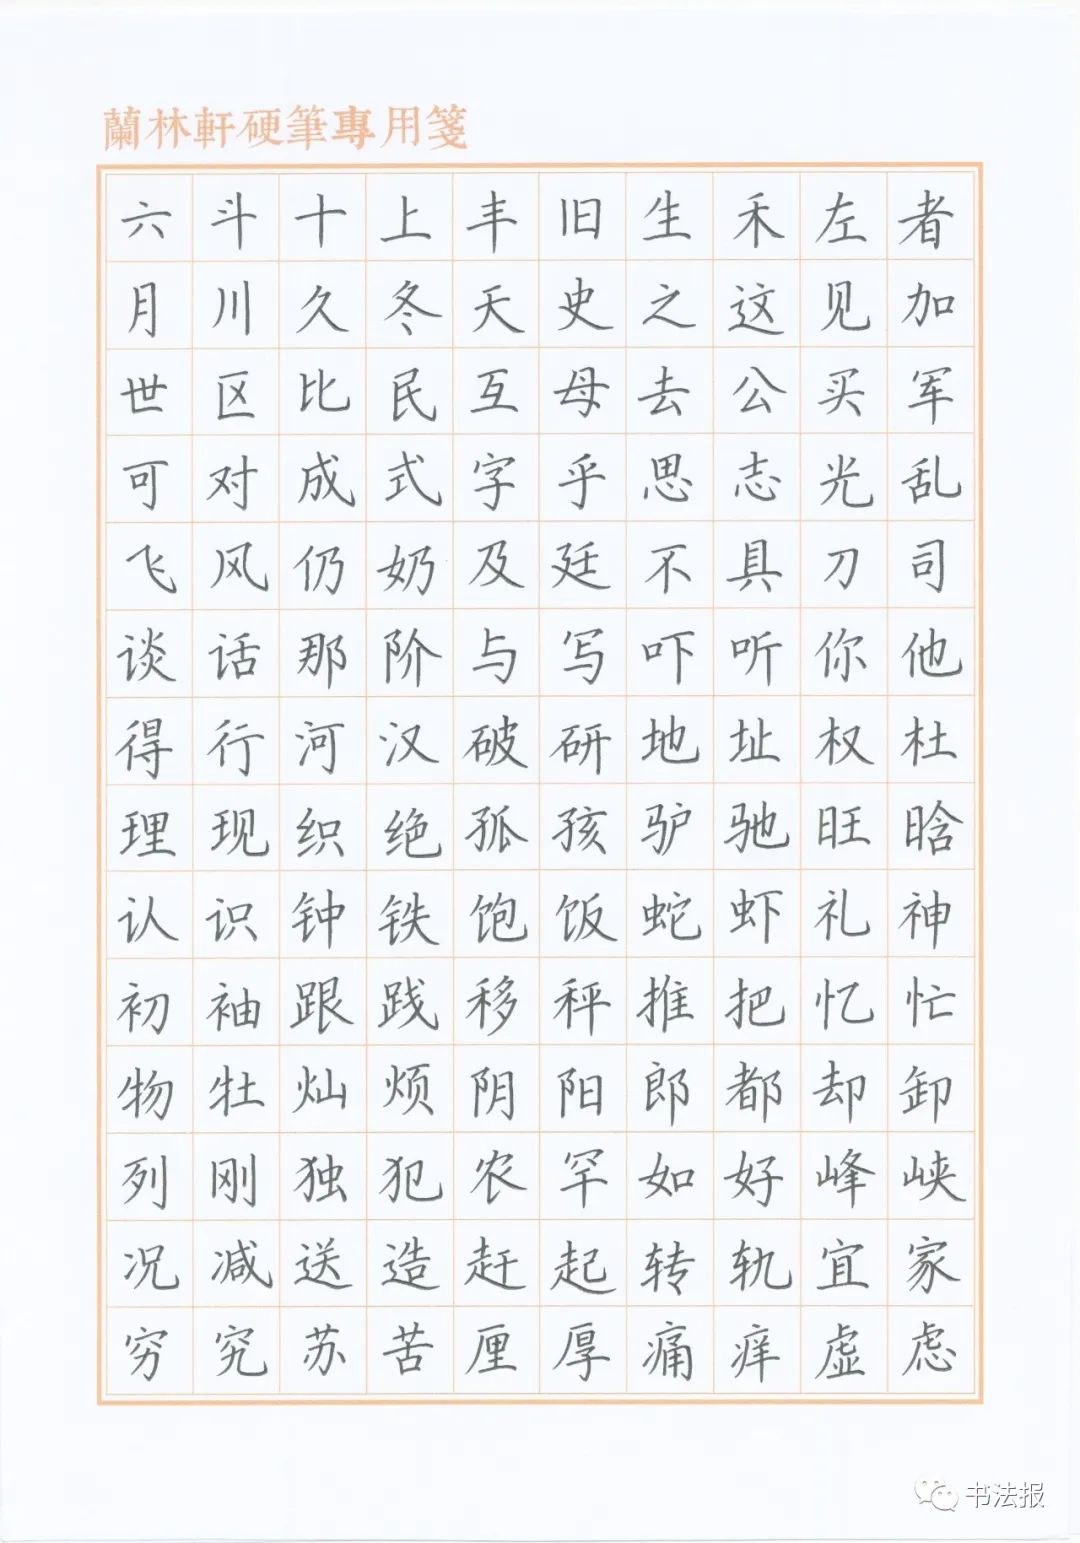 蘭林軒硬筆專用箋
六斗十上丰旧生禾左者
月川久冬天史之这见加
世区比民互母去公买军
可对成式字乎思志光乱
飞风仍奶及廷不具刀司
谈话那阶与写吓听你他
得行河汉破研地址权杜
理现织绝孤孩驴驰旺晗
认识钟铁饱饭蛇虾礼神
初袖跟践移秤推把忆忙
物牡灿烦阴阳郎都却卸
列刚独犯农罕如好峰峡
况减送造赶起转轨宜家
穷究苏苦厘厚痛痒虚虑
书法报